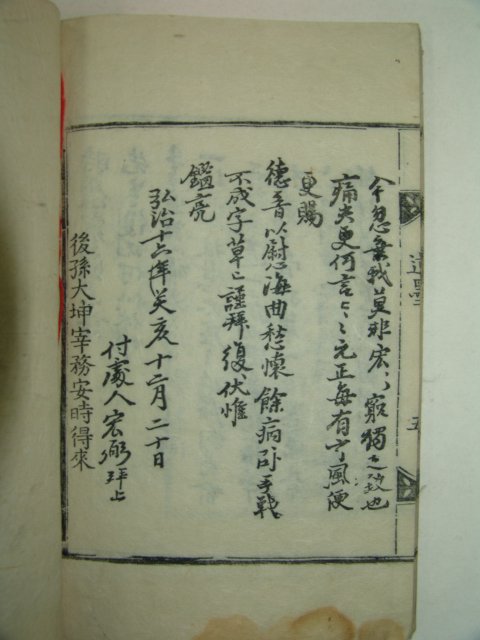 遺墨 五
今忽棄我莫非宏〻窮獨之致也
痛矣更何言〻〻元正每有風便
更賜
德音以慰海曲愁懷餘病卧手戰
不成字草〻謹拜復伏惟
鑑亮
弘治十六年癸亥十二月二十日
付處人宏弼拜上
後孫大坤宰務安時得來